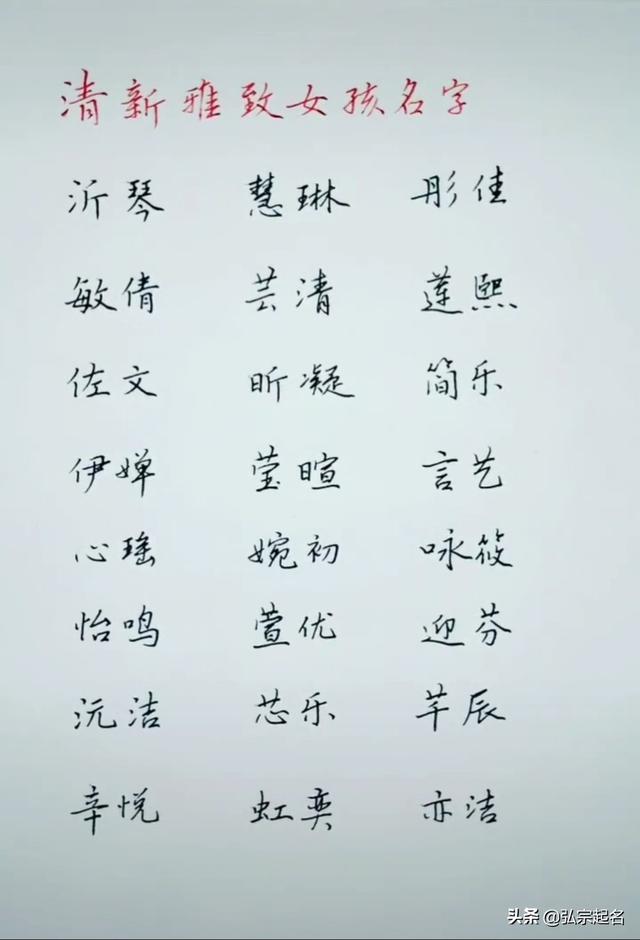 清新雅致女孩名字
沂琴 慧琳 彤佳
敏倩 芸清 莲熙
佐文 昕凝 简乐
伊婵 莹暄 言艺
心瑶 婉初 咏筱
怡鸣 萱优 迎芬
沅洁 芯乐 芊辰
辛悦 虹奕 亦洁
头条 @弘宗起名